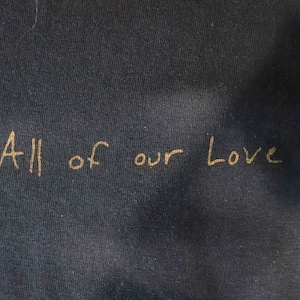 All of our Love